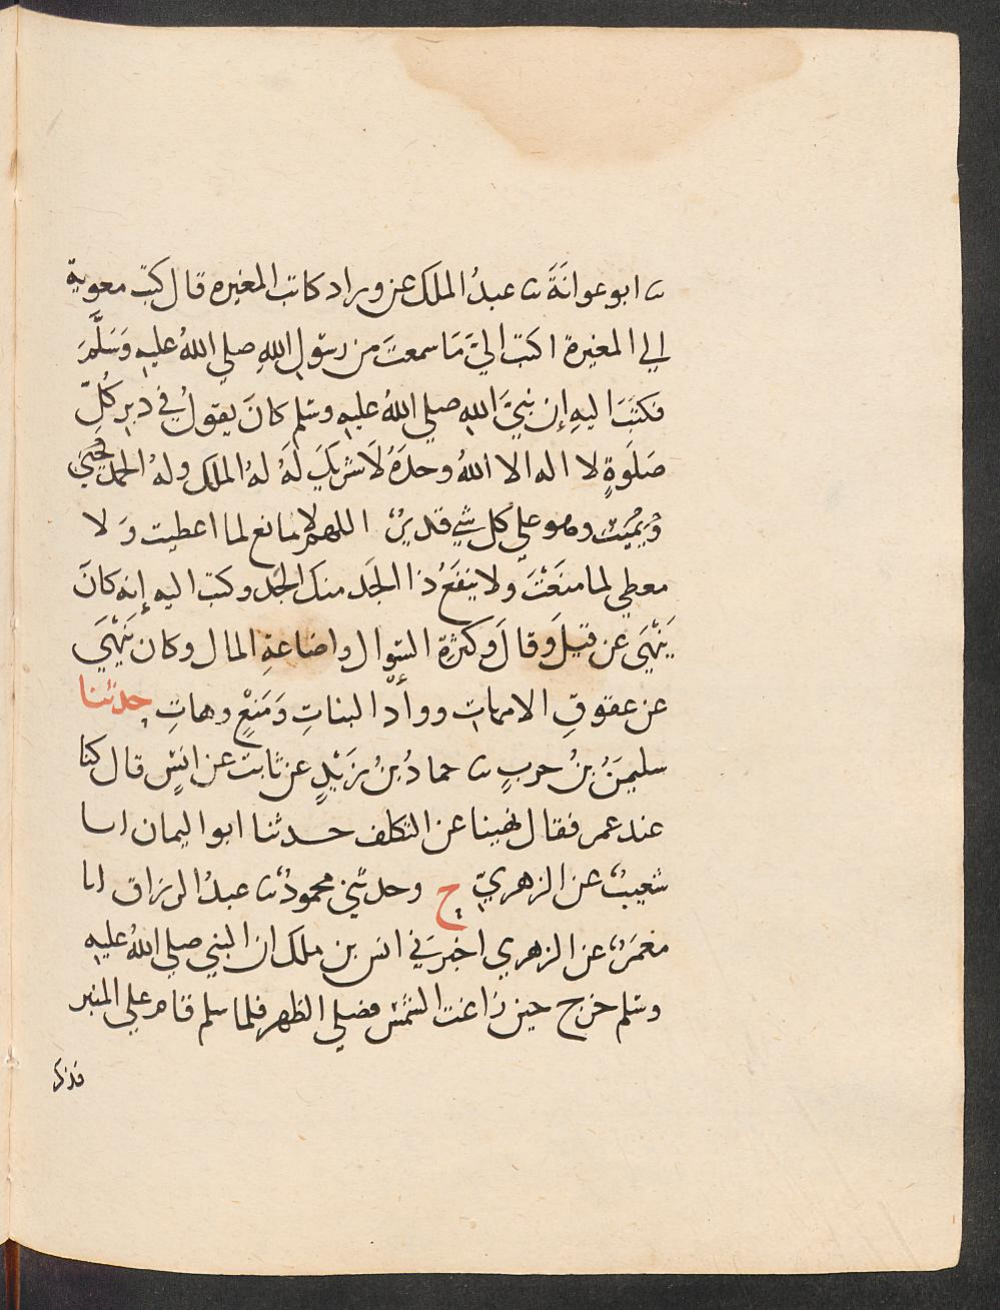 ثنا ابو عوانَةَ ثنا عبدُ الملك عن وراد كاتب المغيره قال كتبَ معوية
الي المغيرة اكتب اليَّ مَا سمعتَ من رسَولِ اللهِ صلي اللهُ عليهِ وَسَلَّمَ
فكتبَ اليهِ إن نبيَّ اللهِ صلي اللهُ عليهِ وسَلم كانَ يقولُ في دبرِ كُلِّ
صَلَوةٍ لا اله الا اللهُ وحدَهُ لَا شريكَ لَهُ لهُ الملك ولهُ الحمدُ يُحْيَي
وَيمُيَت وهو علَي كل شَيٍ قديرٌ اللهم لا مانع لما اعطيت وَلا
معطي لما منَعْتَ ولا ينفَعُ ذا الجَد منكَ الجَد وكتب اليه إنه كانَ
يَنْهَي عن قيلَ وَقالَ وَكثرةِ السَوال واضاعةِ المال وكان يَنْهَي
عن عقوقِ الامهات ووأدِ البناتِ وَمَنعٍْ وهاتِ حدثنا
سليمنُ بنُ حربٍ ثنا حمادُ بنُ زَيْدٍ عن ثابت عن انسٍ قال كنا
عند عمر فقال نهينا عن التكلف حدثنا ابو اليمان انبا
شعيبٌ عن الزهريِّ ح وحدثني محمودٌ ثنا عبدُ الرزاق انا
معْمَرٌ عن الزهري اخبرَني انس بن ملك ان النبي صلي اللهُ عليهِ
وسَلم خرج حين زَاغت الشمْسُ فصلي الظهر فلما سلم قام علي المنبر
فذكر